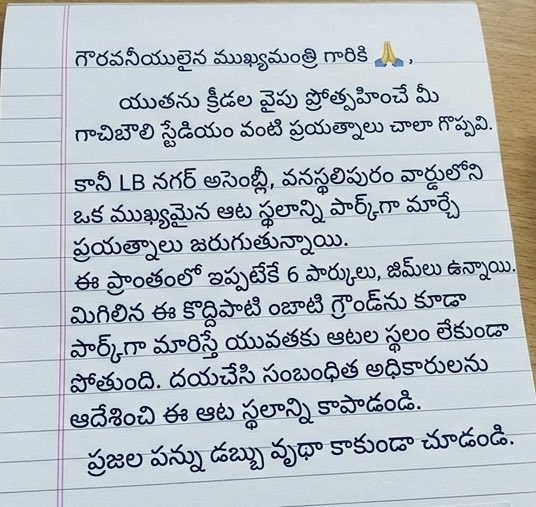 గౌరవనీయులైన ముఖ్యమంత్రి గారికి 🙏,
యుతను క్రీడల వైపు ప్రోత్సహించే మీ
గాచిబౌలి స్టేడియం వంటి ప్రయత్నాలు చాలా గొప్పవి.
కానీ LB నగర్ అసెంబ్లీ, వనస్థలిపురం వార్డులోని
ఒక ముఖ్యమైన ఆట స్థలాన్ని పార్క్‌గా మార్చే
ప్రయత్నాలు జరుగుతున్నాయి.
ఈ ప్రాంతంలో ఇప్పటికే 6 పార్కులు, జిమ్‌లు ఉన్నాయి.
మిగిలిన ఈ కొద్దిపాటి ంబాటి గ్రౌండ్‌ను కూడా
పార్క్‌గా మారిస్తే యువతకు ఆటల స్థలం లేకుండా
పోతుంది. దయచేసి సంబంధిత అధికారులను
ఆదేశించి ఈ ఆట స్థలాన్ని కాపాడండి.
ప్రజల పన్ను డబ్బు వృథా కాకుండా చూడండి.